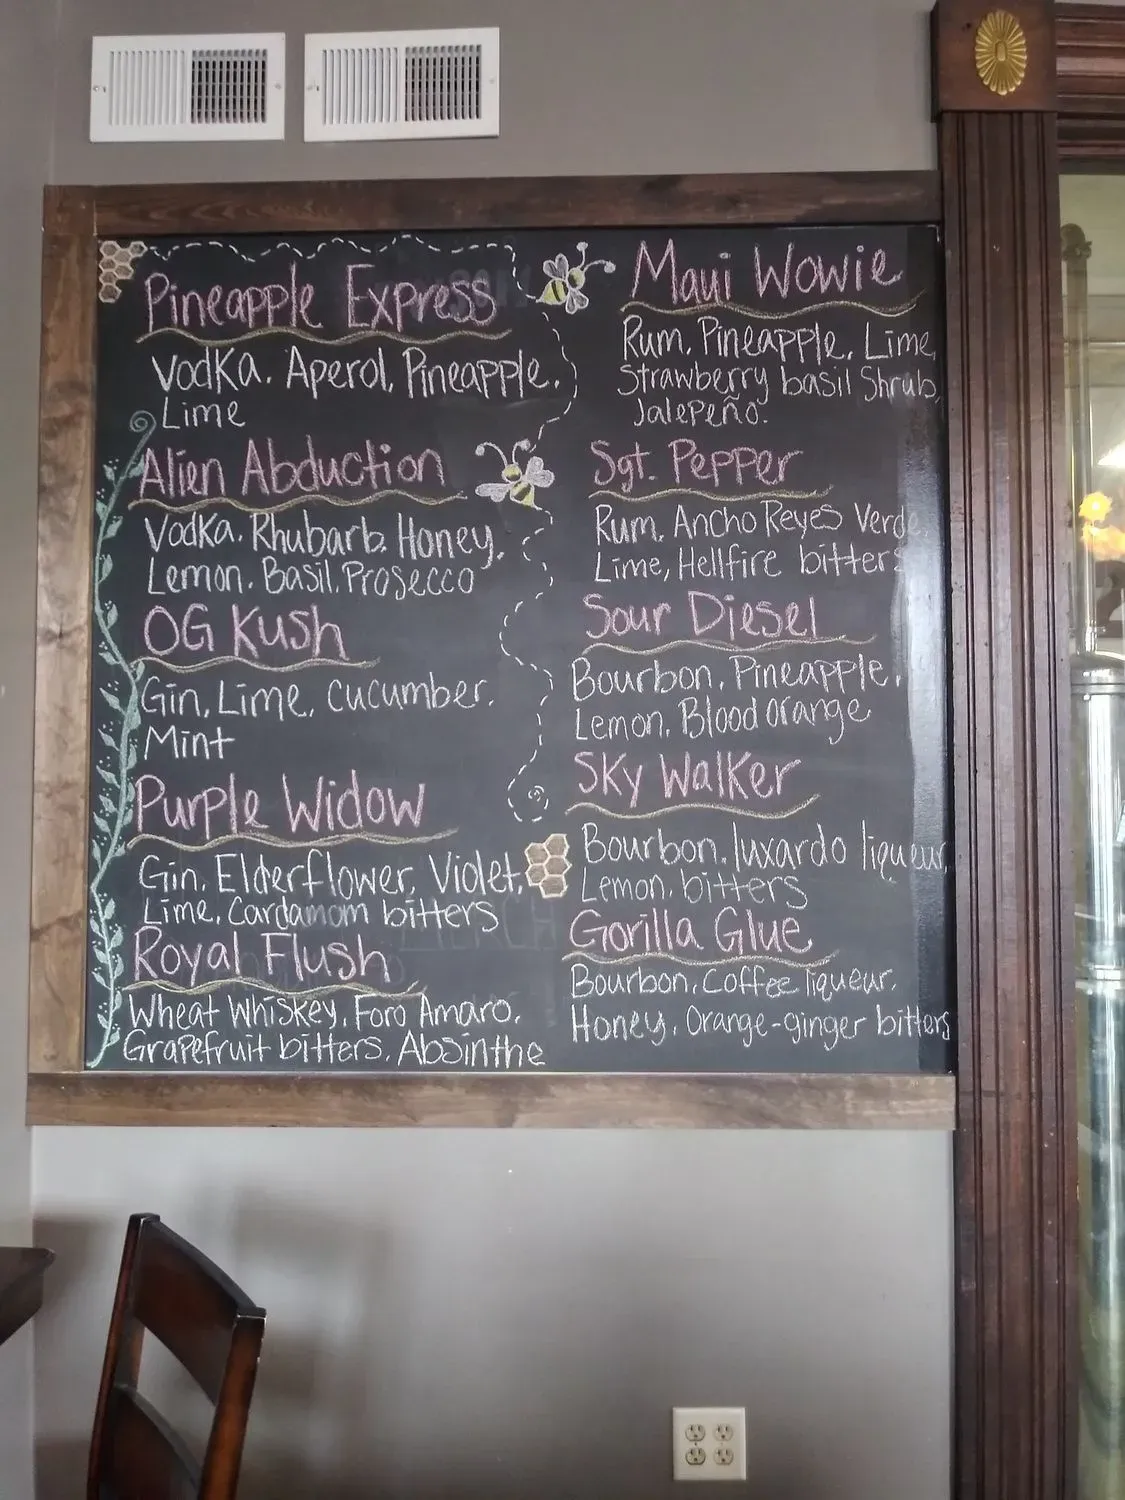 Pineapple Express
Vodka. Aperol, Pineapple.
Lime
Alien Abduction
Vodka. Rhubarb. Honey.
Lemon. Basil. Prosecco
OG Kush
Gin, Lime, cucumber.
Mint
Purple Widow
Gin. Elderflower, Violet.
Lime. Cardamom bitters
Royal Flush
Wheat Whiskey. Foro Amaro.
Grapefruit bitters. Absinthe
Maui Wowie
Rum. Pineapple. Lime,
Strawberry basil Shrub,
Jalepeño.
Sgt. Pepper
Rum, Ancho Reyes Verde,
Lime, Hellfire bitters
Sour Diesel
Bourbon. Pineapple.
Lemon. Blood orange
Sky Walker
Bourbon. luxardo liqueur,
Lemon. bitters
Gorilla Glue
Bourbon. Coffee liqueur.
Honey. Orange-ginger bitters